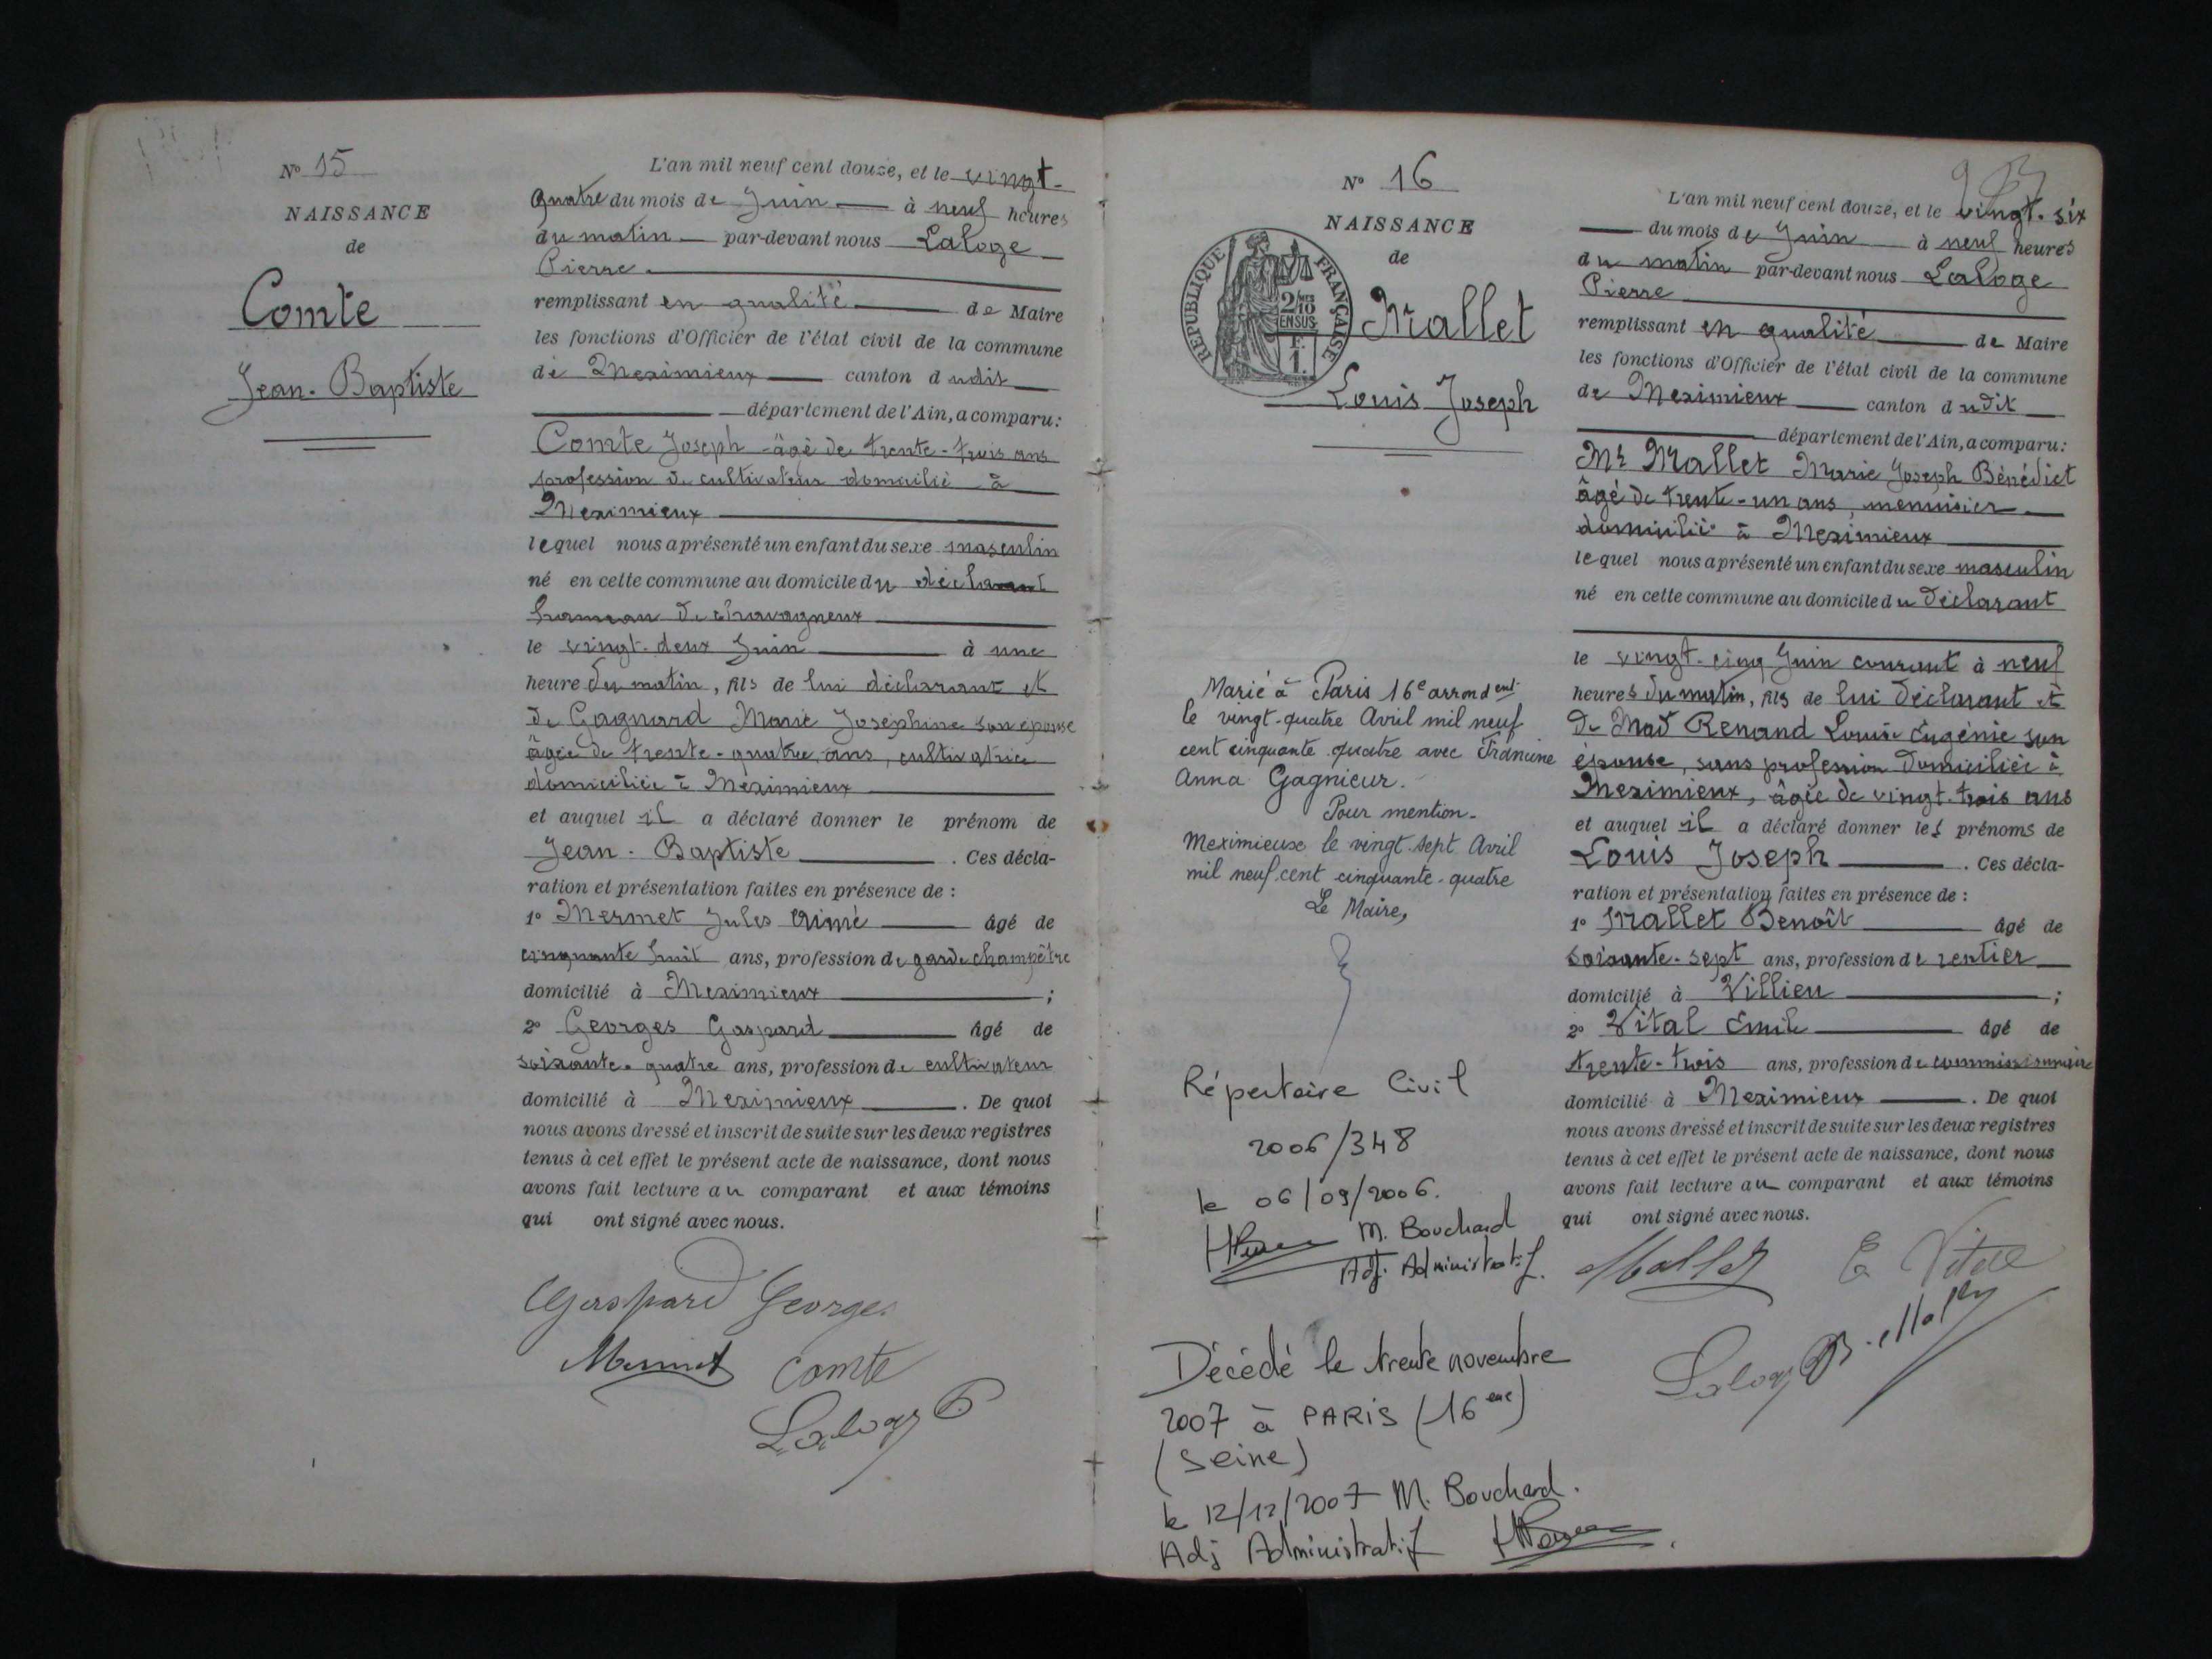 N° 15
NAISSANCE
de
Comte
Jean-Baptiste
L'an mil neuf cent douze, et le vingt-
quatre du mois de Juin à neuf heures
du matin par-devant nous Laloge
Pierre
remplissant en qualité de Maire
les fonctions d'Officier de l'état civil de la commune
de Meximieux canton dudit
département de l'Ain, a comparu:
Comte Joseph âgé de trente-trois ans
profession de cultivateur domicilié à
Meximieux
lequel nous a présenté un enfant du sexe masculin
né en cette commune au domicile du déclarant
hameau de Chavagneux
le vingt-deux Juin à une
heure du matin, fils de lui déclarant et
de Gagnard Marie Joséphine son épouse
âgée de trente-quatre ans, cultivatrice
domiciliée à Meximieux
et auquel il a déclaré donner le prénom de
Jean-Baptiste. Ces décla-
ration et présentation faites en présence de :
1° Mermet Jules Aimé âgé de
cinquante huit ans, profession de garde champêtre
domicilié à Meximieux ;
2° Georges Gaspard âgé de
soixante-quatre ans, profession de cultivateur
domicilié à Meximieux. De quoi
nous avons dressé et inscrit de suite sur les deux registres
tenus à cet effet le présent acte de naissance, dont nous
avons fait lecture au comparant et aux témoins
qui ont signé avec nous.
Gaspard Georges
Mermet Comte
Laloge P
N° 16
NAISSANCE
de
RÉPUBLIQUE FRANÇAISE
2/10
EN SUS
F.
1.
Mallet
Louis Joseph
Marié à Paris 16e arrondent
le vingt-quatre Avril mil neuf
cent cinquante quatre avec Francine
Anna Gagnieur.
Pour mention-
Meximieux le vingt-sept Avril
mil neuf cent cinquante-quatre
Le Maire,
Répertoire Civil
2006/348
le 06/09/2006.
M. Bouchard
Adj. Administratif.
Décédé le trente novembre
2007 à PARIS (16eme)
(Seine)
le 12/12/2007 M. Bouchard.
Adj Administratif
L'an mil neuf cent douze, et le vingt-six
du mois de Juin à neuf heures
du matin par-devant nous Laloge
Pierre
remplissant en qualité de Maire
les fonctions d'Officier de l'état civil de la commune
de Meximieux canton dudit
département de l'Ain, a comparu:
Mr Mallet Marie Joseph Bénédict
âgé de trente-un ans, menuisier
domicilié à Meximieux
lequel nous a présenté un enfant du sexe masculin
né en cette commune au domicile du déclarant
le vingt-cinq Juin courant à neuf
heures du matin, fils de lui déclarant et
de Mad Renand Louise Eugénie son
épouse, sans profession domiciliée à
Meximieux, âgée de vingt-trois ans
et auquel il a déclaré donner les prénoms de
Louis Joseph. Ces décla-
ration et présentation faites en présence de :
1° Mallet Benoît âgé de
soixante-sept ans, profession de rentier
domicilié à Villieu ;
2° Vital Emile âgé de
trente-trois ans, profession de commissionnaire
domicilié à Meximieux. De quoi
nous avons dressé et inscrit de suite sur les deux registres
tenus à cet effet le présent acte de naissance, dont nous
avons fait lecture au comparant et aux témoins
qui ont signé avec nous.
Mallet E Vital
Laloge